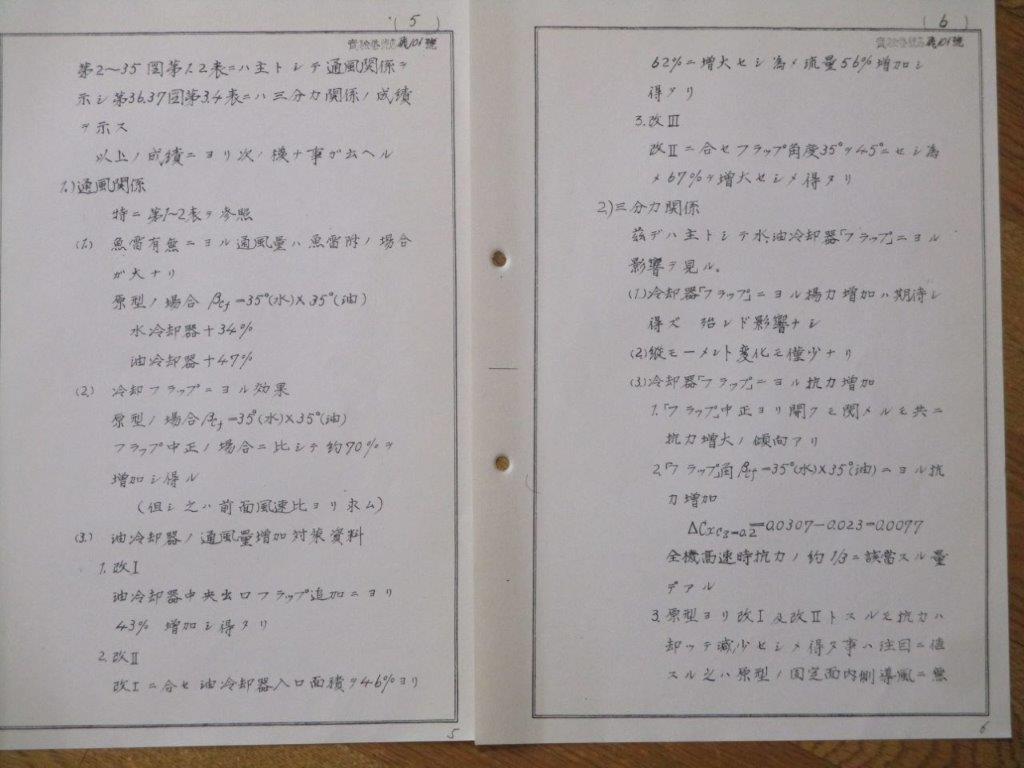 (5)
第2~35図第1.2表ニハ主トシテ通風関係ヲ
示シ第36.37図第3.4表ニハ三分力関係ノ成績
ヲ示ス
以上ノ成績ニヨリ次ノ様ナ事が云ヘル
1.)通風関係
特ニ第1~2表ヲ参照
(1.) 魚雷有無ニヨル通風量ハ魚雷附ノ場合
が大ナリ
原型ノ場合 βcf=35°(水)×35°(油)
水冷却器+34%
油冷却器+47%
(2.) 冷却フラップニヨル効果
原型ノ場合βcf=35°(水)×35°(油)
フラップ中正ノ場合ニ比シテ約70%ヲ
増加シ得ル
(但シ之ハ前面風速比ヨリ求ム)
(3.) 油冷却器ノ通風量増加対策資料
1. 改I
油冷却器中央出口フラップ追加ニヨリ
43% 増加シ得タリ
2. 改II
改Iニ合セ油冷却器入口面積ヲ46%ヨリ
5
(6)
62%ニ増大セシ為メ流量56%増加シ
得タリ
3. 改III
改IIニ合セフラップ角度35°ヲ45°ニセシ為
メ67%ヲ増大セシメ得タリ
2.)三分力関係
茲デハ主トシテ水、油冷却器「フラップ」ニヨル
影響ヲ見ル。
(1.)冷却器「フラップ」ニヨル揚力増加ハ期待シ
得ズ 殆ンド影響ナシ
(2.)縦モーメント変化モ僅少ナリ
(3.)冷却器「フラップ」ニヨル抗力増加
1.「フラップ」中正ヨリ開クモ閉メルモ共ニ
抗力増大ノ傾向アリ
2.「フラップ」角βcf=35°(水)×35°(油)ニヨル抗
力増加
ΔCxc3=0.2=0.0307-0.023=0.0077
全機高速時抗力ノ約1/3ニ該当スル量
デアル
3. 原型ヨリ改I及改IIトスルモ抗力ハ
却ッテ減少セシメ得タ事ハ注目ニ値
スル之ハ原型ノ固定面内側導風ニ無
6